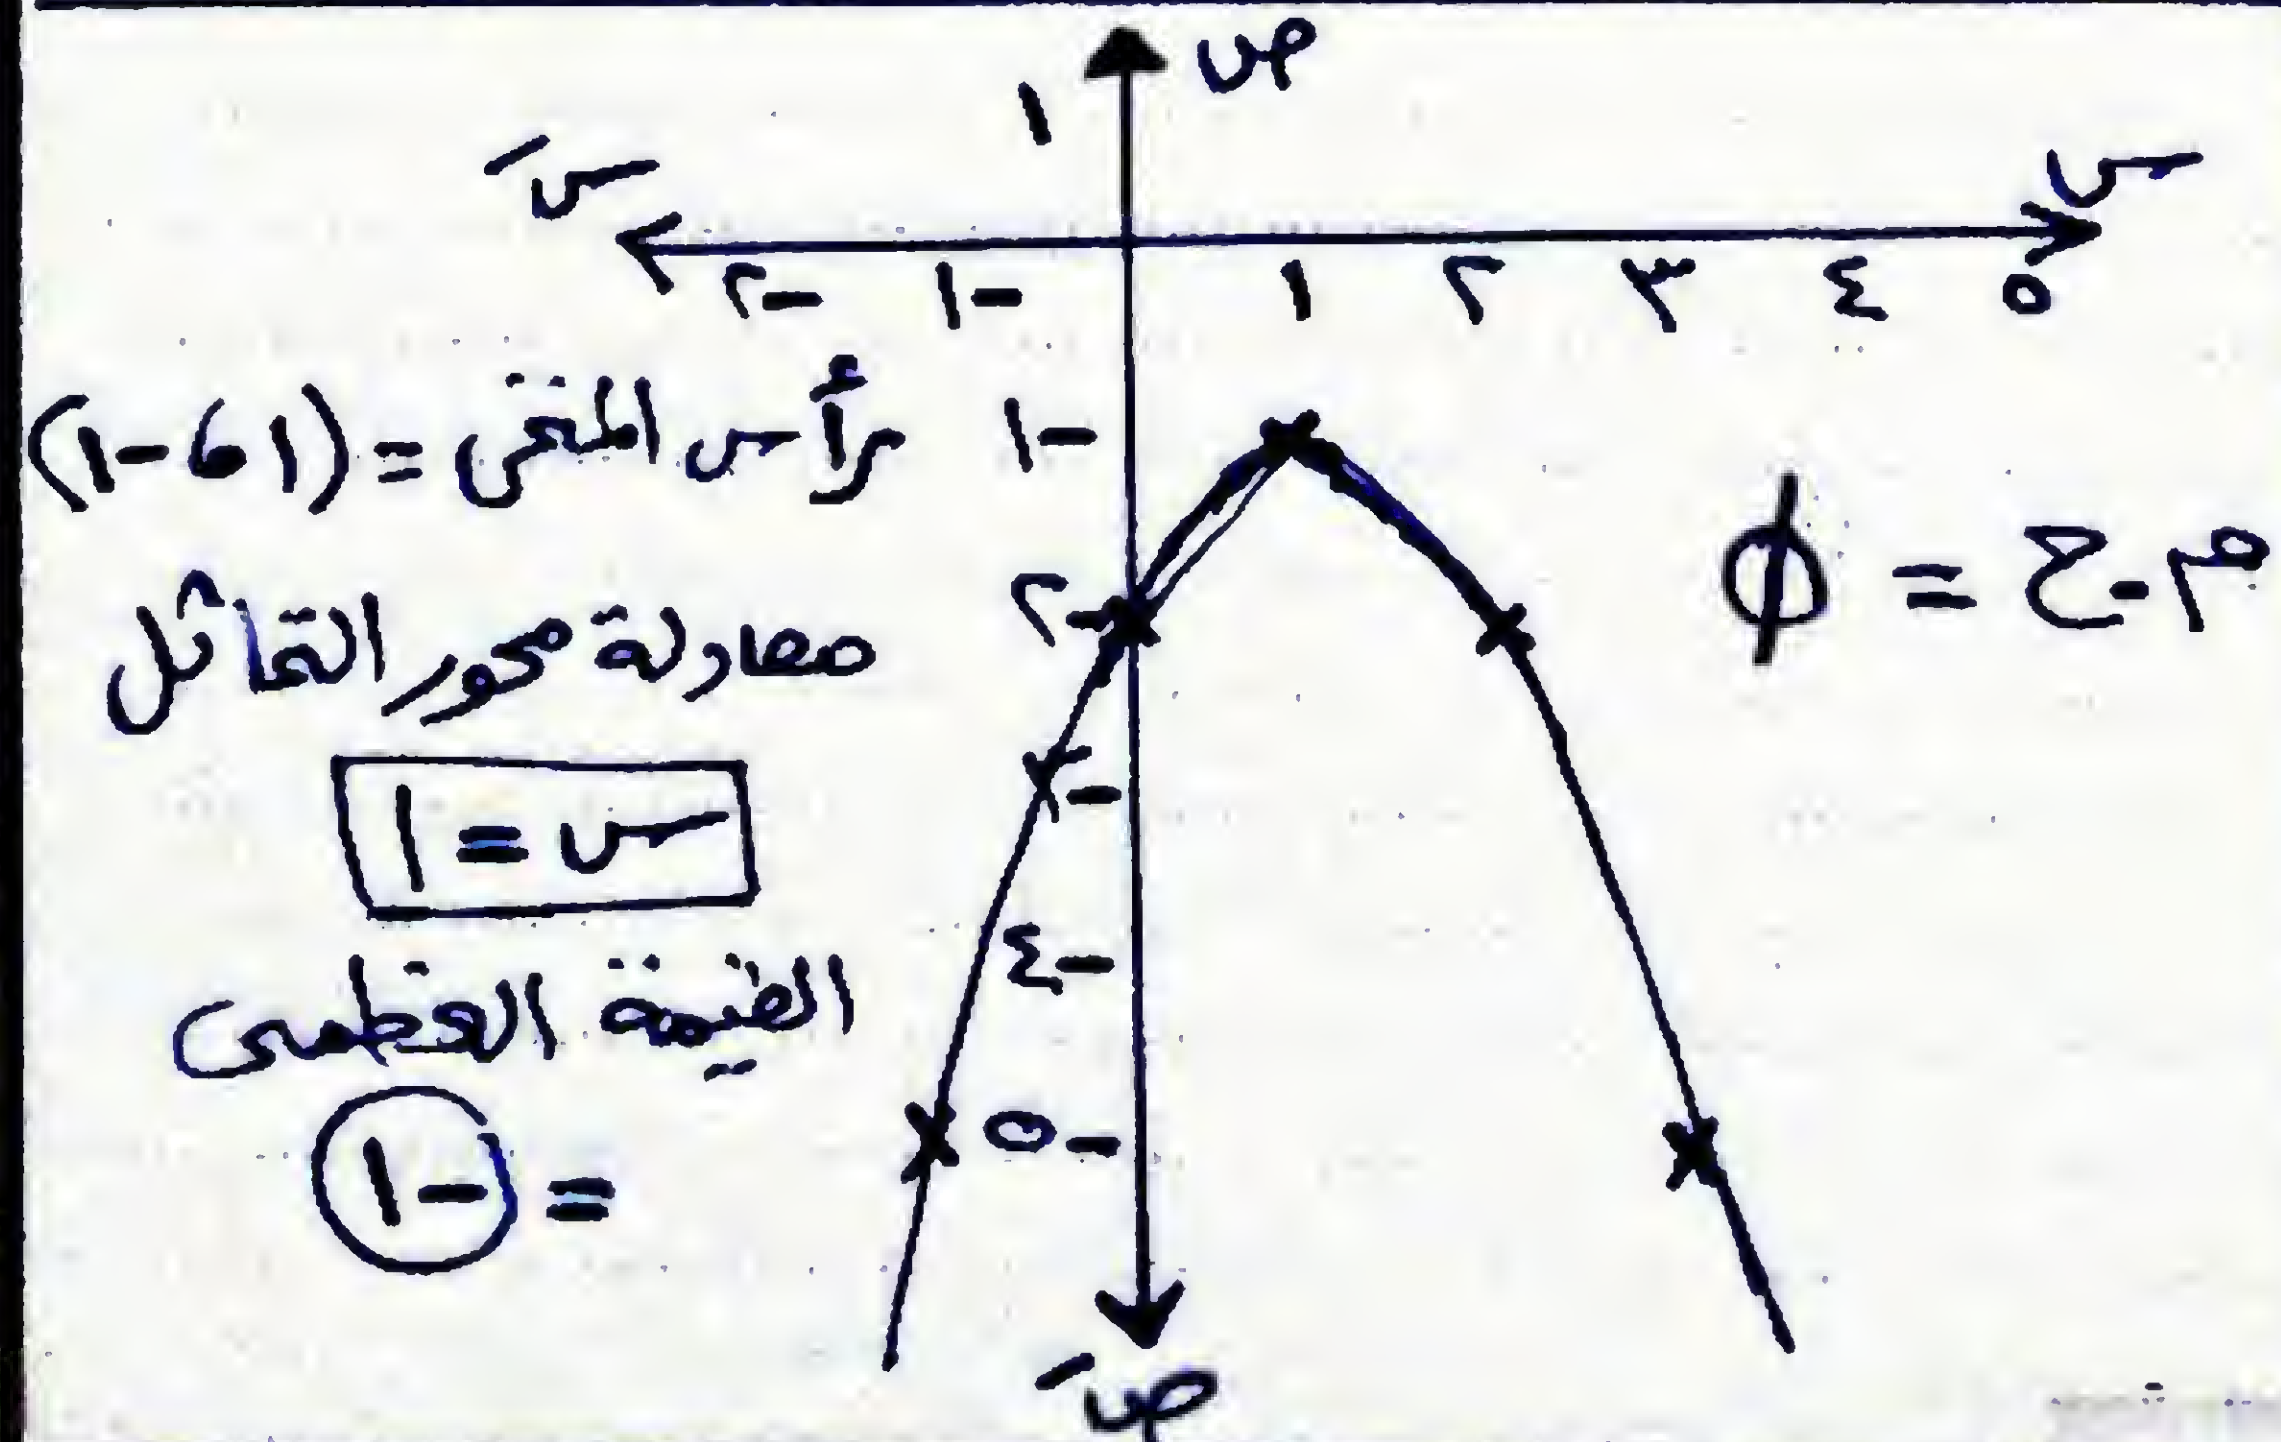 ص
١
سَ
س
-٢ -١ ١ ٢ ٣ ٤ ٥
-١
رأس المنحنى = (١ ، -١)
م.ح = ϕ
-٢
معادلة محور التماثل
-٣
س = ١
-٤
القيمة العظمى
-٥
= -١
صَ